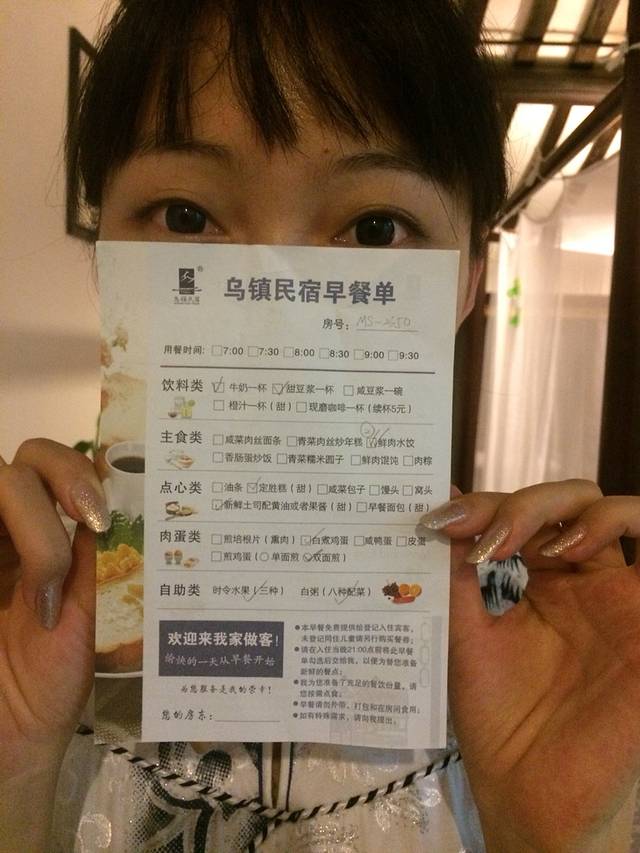 乌镇民宿
乌镇民宿早餐单
房号：
用餐时间: □7:00 □7:30 □8:00 □8:30 □9:00 □9:30
饮料类 ☑牛奶一杯 ☑甜豆浆一杯 □咸豆浆一碗
□橙汁一杯（甜）□现磨咖啡一杯（续杯5元）
主食类 □咸菜肉丝面条 □青菜肉丝炒年糕 ②☑鲜肉水饺
□香肠蛋炒饭 □青菜糯米圆子 □鲜肉馄饨 □肉粽
点心类 □油条 ☑定胜糕（甜）□咸菜包子 □馒头 □窝头
☑新鲜土司配黄油或者果酱（甜）□早餐面包（甜）
肉蛋类 □煎培根片（熏肉）☑白煮鸡蛋 □咸鸭蛋 □皮蛋
□煎鸡蛋（○单面煎 ☑双面煎）
自助类 时令水果（三种） 白粥（八种配菜）
欢迎来我家做客!
愉快的一天从早餐开始
为您服务是我的荣幸!
您的房东:
●本早餐免费提供给登记入住宾客,
未登记同住儿童请另行购买餐券;
●请在入住当晚21:00点前将此早餐
单勾选后交给我, 以便为替您准备
新鲜的餐点;
●我为您准备了充足的餐饮份量, 请
您按需点食;
●早餐请勿外带、打包和在房间食用;
●如有特殊需求, 请向我提出。